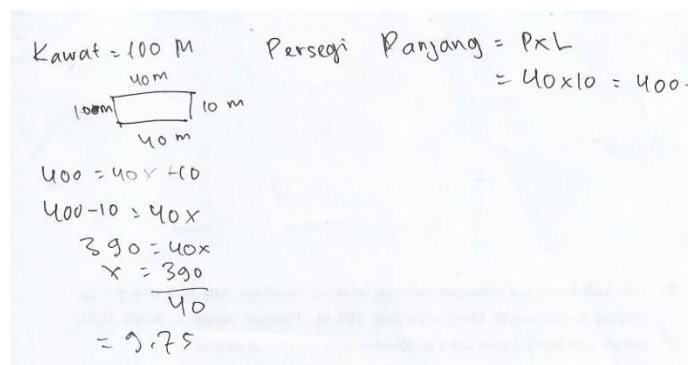 Kawat = 100 M
Persegi Panjang = P x L
= 40 x 10 = 400.
40 m
10 m
10 m
40 m
400 = 40x + 10
400 - 10 = 40x
390 = 40x
x = 390
40
= 9.75